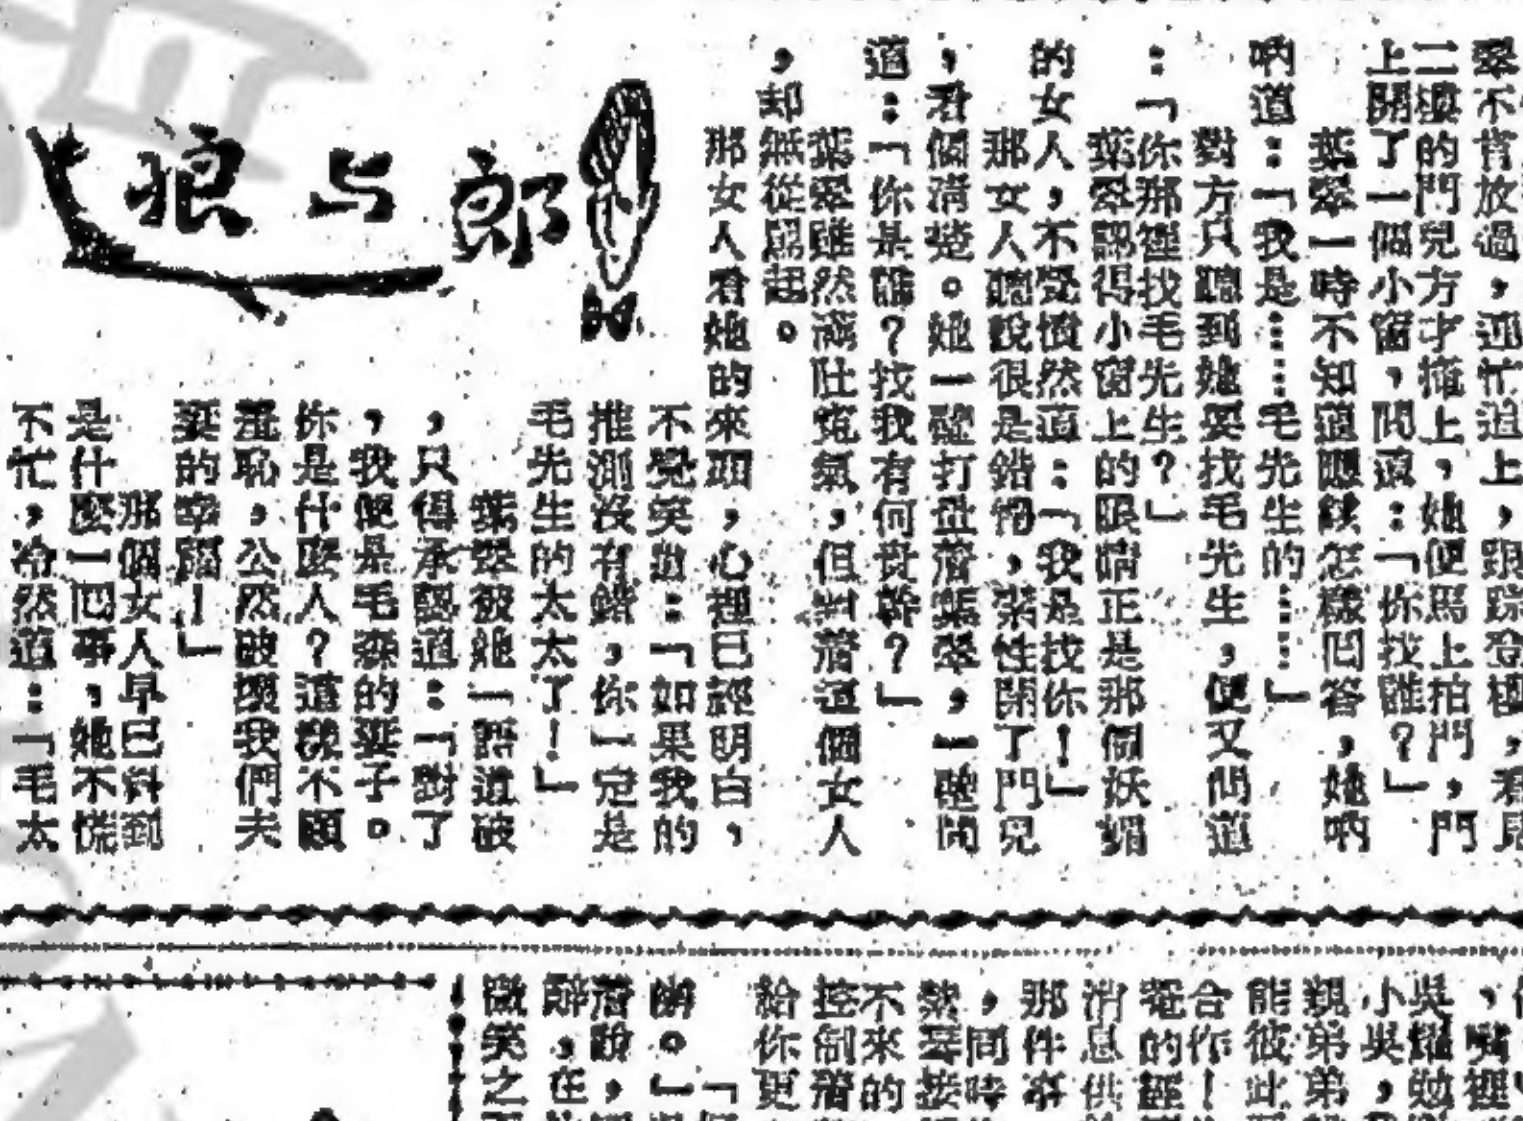 翠不肯放過,連忙追上,跟踪登樓,看見
二樓的門兒方才掩上,她便馬上拍門,門
上開了一個小窗,問道:「你找誰?」
葉翠一時不知道應該怎樣回答,她吶
吶道:「我是……毛先生的……」
對方只聽到她要找毛先生,便又問道
:「你那裡找毛先生?」
葉翠認得小窗上的眼睛正是那個妖媚
的女人,不覺憤然道:「我是找你!」
那女人聽說很是錯愕,索性開了門兒
,看個清楚。她一壁打量着葉翠,一壁問
道:「你是誰?找我有何貴幹?」
葉翠雖然滿肚寃氣,但對着這個女人
,却無從罵起。
那女人看她的來頭,心裡已經明白,
郎与狼
不覺笑道:「如果我的
推測沒有錯,你一定是
毛先生的太太了!」
葉翠被她一語道破
,只得承認道:「對了
,我便是毛森的妻子。
你是什麼人?這樣不顧
羞恥,公然破壞我們夫
妻的幸福!」
那個女人早已料到
是什麼一回事,她不慌
不忙,冷然道:「毛太
,同時
那件事
消息供
合作!
能彼此
親弟弟
小吳,
不來的
控制着
給你更
微笑之